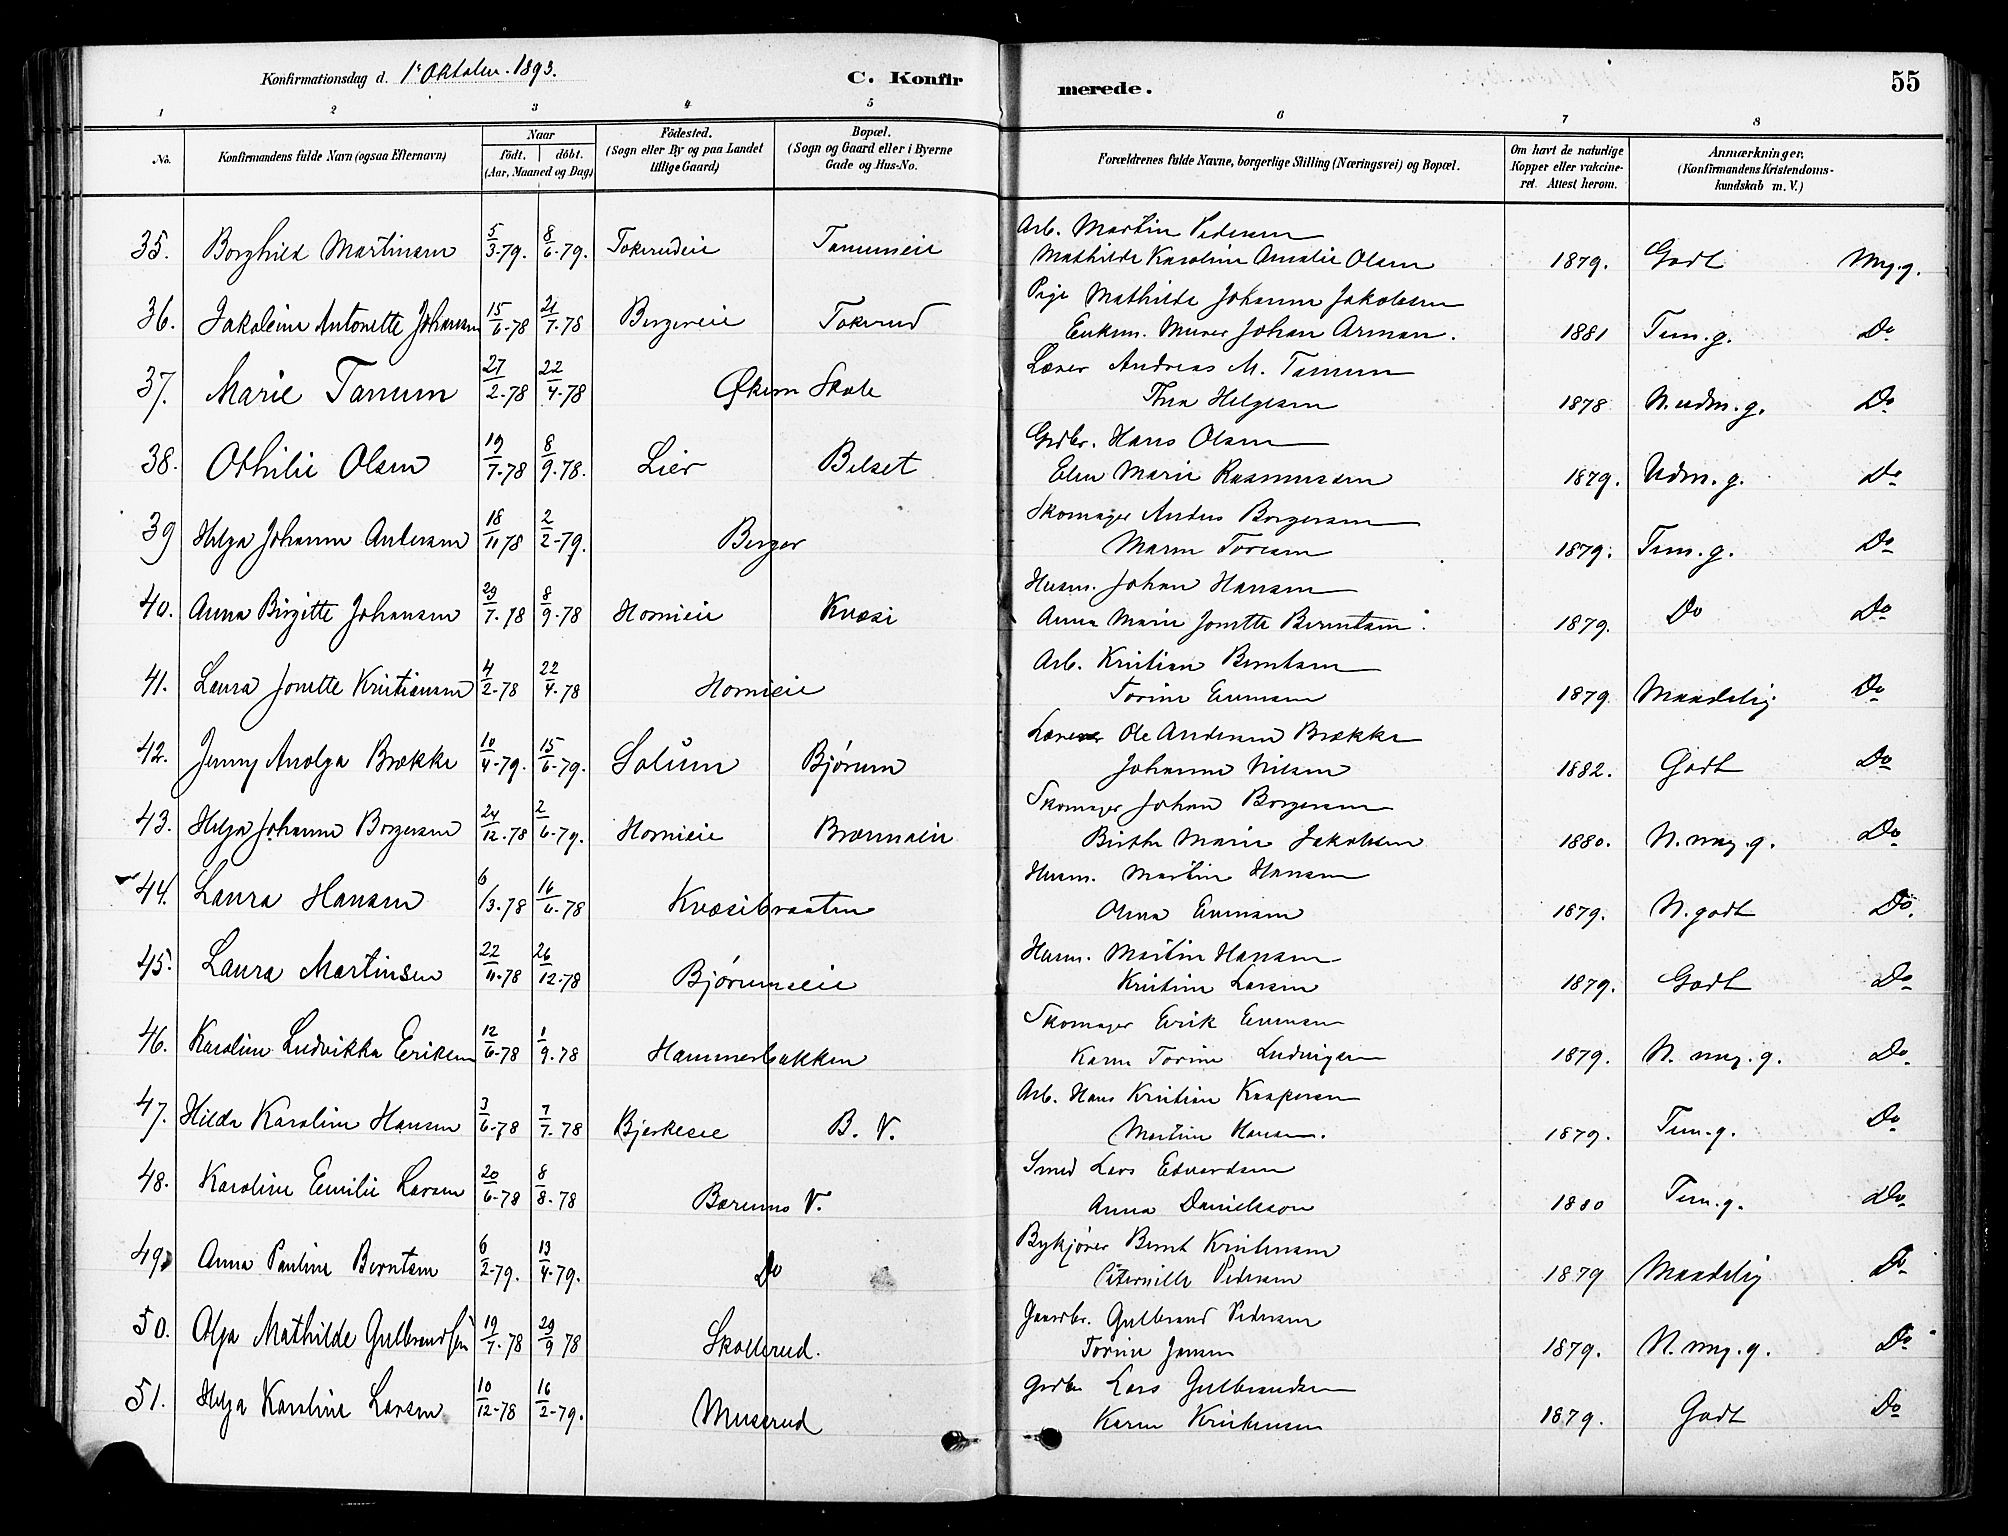 Konfirmationsdag d. 1ˢ Oktober. 1893.
C. Konfirmerede.
55
1 2 3 4 5 6 7 8
No. Konfirmandens fulde Navn (ogsaa Efternavn) Naar födt. döbt. (Aar, Maaned og Dag) Födested. (Sogn eller By og paa Landet tillige Gaard) Bopæl. (Sogn og Gaard eller i Byerne Gade og Hus-No. Forældrenes fulde Navne, borgerlige Stilling (Næringsvei) og Bopæl. Om havt de naturlige Kopper eller vakcineret. Attest herom. Anmærkninger. (Konfirmandens Kristendomskundskab m. V.)
35. Borghild Martinsen 5/3-79. 8/6-79. Tokerudeie Tanumeie Arb. Martin Pedersen
Mathilde Karoline Amalie Olsen 1879. Godt Mg.g.
36. Jakobine Antonette Johansen 15/6-78 21/7-78 Bergereie Tokerud Pige Mathilde Johanne Jakobsen
Enkem. Murer Johan Arman. 1881 Tem.g. Do
37. Marie Tanum 27/2-78 22/4-78 Økern Skole Lærer Andreas M. Tanum
Thea Helgesen 1878 N.udm.g. Do
38. Othilie Olsen 19/7-78 8/9-78. Lier Belset Grdbr. Hans Olsen
Elen Marie Rasmussen 1879. Udm.g. Do
39 Helga Johanne Andersen 18/11 78 2/2-79. Berger Skomager Anders Borgersen
Maren Toresen 1879. Tem.g. Do
40. Anna Birgitte Johansen 29/7-78 8/9-78 Hornieie Kvæsi Husm. Johan Hansen
Anna Marie Jonette Berntsen. 1879. Do Do
41. Laura Jonette Kristiansen 4/2-78 22/4-78 Hornieie Arb. Kristian Berntsen
Torine Evensen 1879 Maadelig Do
42. Jenny Anolga Brække 10/4-79. 15/6-79. Solum Bjørum Lærer Ole Andersen Brække
Johanne Nilsen 1882. Godt Do
43. Helga Johanne Borgersen 24/12-78 2/6-79. Hornieie Brennaeie Skomager Johan Borgersen
Birthe Marie Jakobsen 1880. N.mg.g. Do
44. Laura Hansen 6/3-78 16/6-78 Kvæsibraaten Husm. Martin Hansen
Anna Evensen 1879. N.godt Do.
45. Laura Martinsen 22/11-78 26/12-78 Bjørumseie Husm. Martin Hansen
Kristine Larsen 1879. Godt Do
46. Karoline Ludvikka Eriksen 12/6-78 1/9-78 Hammerbakken Skomager Erik Evensen
Karen Torine Ludvigsen 1879. N.mg.g. Do
47. Hilda Karoline Hansen 3/6-78 7/7-78 Bjerkeseie B. V. Arb. Hans Kristian Kaspersen
Martine Hansen. 1879. Tem.g. Do
48. Karoline Emilie Larsen 20/6-78 8/8-78 Bærums V. Smed Lars Edvardsen
Anna Danielsson 1880 Tem.g. Do
49. Anna Pauline Berntsen 6/2-79. 13/4-79. Do Bykjører Bernt Kristensen
Peternille Pedersen 1879 Maadelig Do
50. Olga Mathilde Gulbrandsen 19/7-78 29/9 78 Skollerud. Gaardbr. Gulbrand Pedersen
Torine Jensen 1879. N.mg.g. Do
51. Helga Karoline Larsen 10/12-78 16/2-79. Muserud Grdbr. Lars Gulbrandsen
Karen Kristensen 1879. Godt Do